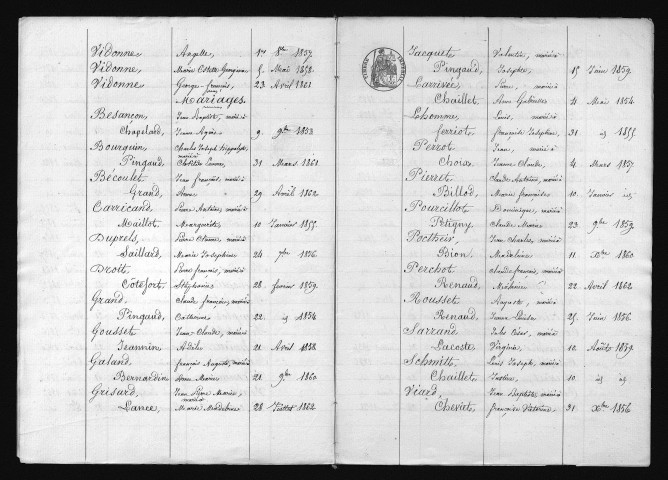 Vidonne, Angelle, 17 8bre 1857.
Vidonne, Marie Colette Georgina 5. Mai 1858.
Vidonne, George français, 23 Avril 1861
Mariages.
Besançon, Jean Baptiste, marié à
Chapelard, Jeanne Agnès 9. 9bre 1853
Bourquin, Charles Joseph Hippolyte, marié à
Pingaud, Clotilde 31 Mars 1861
Bécoulet Jean françois, marié à
Grand, Anne 29 Avril 1862
Carricand Pierre Antoine, marié à
Maillot Marguerite 10 Janvier 1855.
Duprels, Pierre Etienne, marié à
Saillard, Marie Josephine 24 7bre 1856.
Droit, Pierre français, marié à
Cotefort Stéphanie 28 fevrier 1859.
Grand, Claude françois, marié à
Pingaud, Catherine 22 id 1854
Gousset Jean-Claude, marié à
Jeannin, Adèle 21 Avril 1858.
Galand, françois Auguste, marié à
Bernardin Anne Marie 21 9bre 1860.
Grisard, Jean Pierre Marie, marié à
Lance, Marie Madeleine 28 Juillet 1862
Jacquet, Valentin, marié à
Pingaud, Josephte 15 Juin 1859.
Larrivée, Pierre, marié à
Chaillet, Anne Gabrielle 4 Mai 1854
Lhomme Louis, marié à
ferriot françoise Josephine 31 id 1855.
Perrot Jean, marié à
Choix, Jeanne Claude, 4 Mars 1857.
Pierret Claude Antoine, marié à
Billod, Marie françoise 10 Janvier id
Pourcillot Dominique, marié à
Petigny Claude Marie 23 9bre 1859.
Pochein, Jean Charles, marié à
Bion, Madeleine 11 Xbre 1860.
Perchot Claude français, marié à
Renaud, Mélanie 22 Avril 1862
Rousset Auguste, marié à
Renaud, Jeanne Louise 25 Juin 1856
Sarrand Jules César, marié à
Lacoste Virginie, 10 Août 1859.
Schmitt Louis Joseph, marié à
Chaillet, Justine 10 id id
Viard, Jean Baptiste, marié à
Cheviet, françoise Victorine 31 Xbre 1856